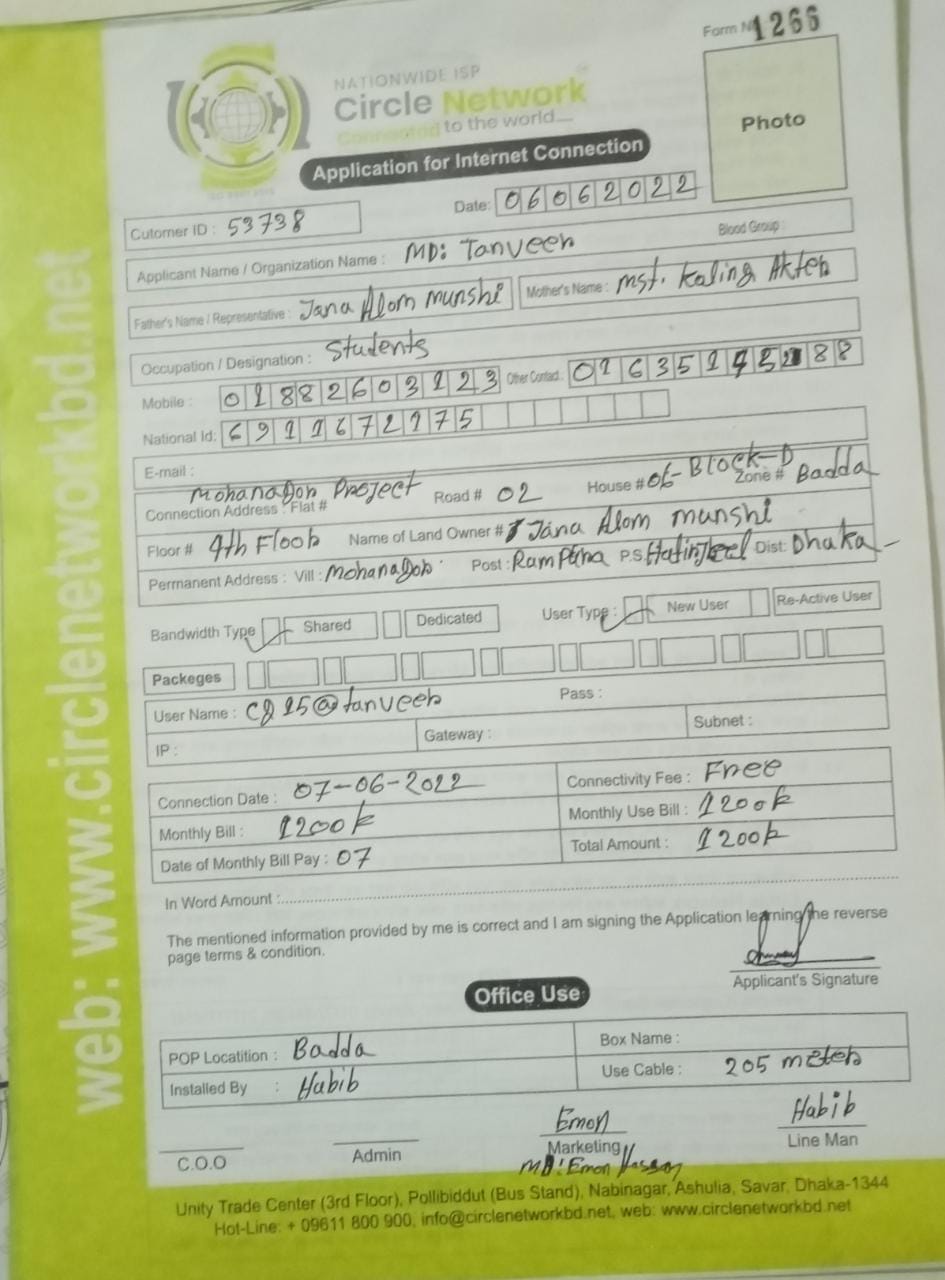 Form N 1266
NATIONWIDE ISP
Circle Network
Connected to the world....
Photo
Application for Internet Connection
Date: 06062022
Cutomer ID : 53738
Blood Group :
Applicant Name / Organization Name : MD: Tanveer
Father's Name / Representative : Jana Alom munshi Mother's Name : mst. Kaling Akter
Occupation / Designation : Students
Mobile : 01882603123 Other Contact :
National Id: 6911672975
E-mail :
Connection Address : Flat # Mohanagor Project Road # 02 House # 06- Block-D Zone # Badda
Floor # 9th Floor Name of Land Owner # Jana Alom munshi
Permanent Address : Vill : Mohanagor Post : Rampura P.S. Dist: Dhaka
Bandwidth Type Shared Dedicated User Type : New User Re-Active User
Packeges
User Name : Pass :
IP : Gateway : Subnet :
Connection Date : 07-06-2022 Connectivity Fee : Free
Monthly Bill : 1200k Monthly Use Bill : 1200k
Date of Monthly Bill Pay : 07 Total Amount : 1200k
In Word Amount :
The mentioned information provided by me is correct and I am signing the Application learning the reverse
page terms & condition.
Applicant's Signature
Office Use
POP Locatition : Badda Box Name :
Installed By : Habib Use Cable : 205 meter
Emon Habib
C.O.O Admin Marketing Line Man
MD: Emon Hassan
Unity Trade Center (3rd Floor), Pollibiddut (Bus Stand), Nabinagar, Ashulia, Savar, Dhaka-1344
Hot-Line: + 09611 800 900, info@circlenetworkbd.net, web: www.circlenetworkbd.net
web: www.circlenetworkbd.net